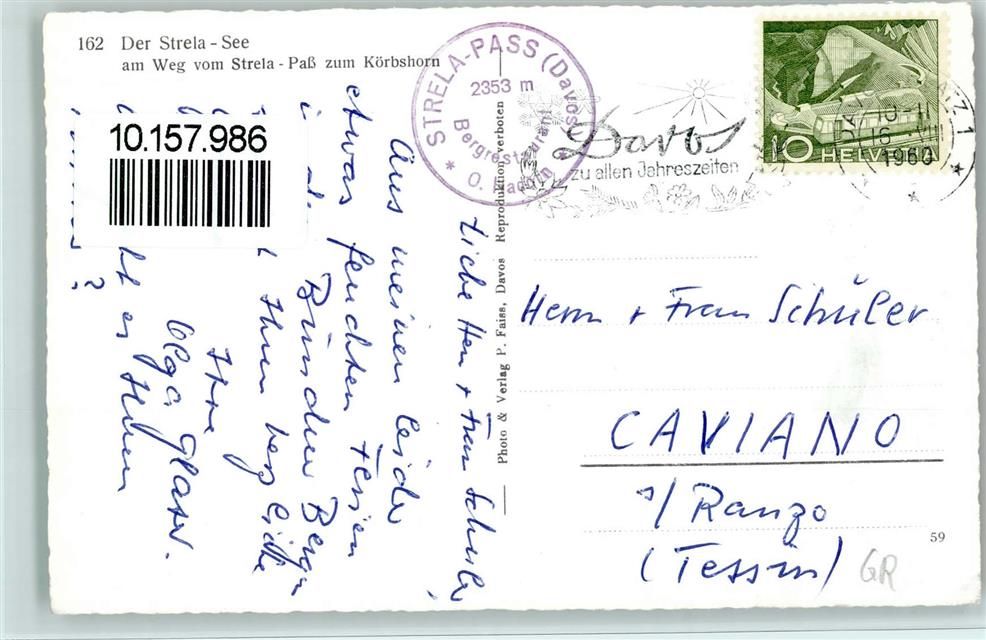 162 Der Strela - See
am Weg vom Strela - Paß zum Körbshorn
10.157.986
STRELA-PASS (Davos)
2353 m
Bergrestaurant
Davos
zu allen Jahreszeiten
1960
10 HELVETIA
Photo & Verlag P. Faiss, Davos Reproduktion verboten
Liebe Herr + Frau Schüler
Aus meinen leider
etwas feuchten Tessin
Bündner Berge
Ihnen herzliche
Ihre
Olga
es Ihnen
?
Herrn + Frau Schüler
CAVIANO
s/ Ranzo
(Tessin)
59
GR